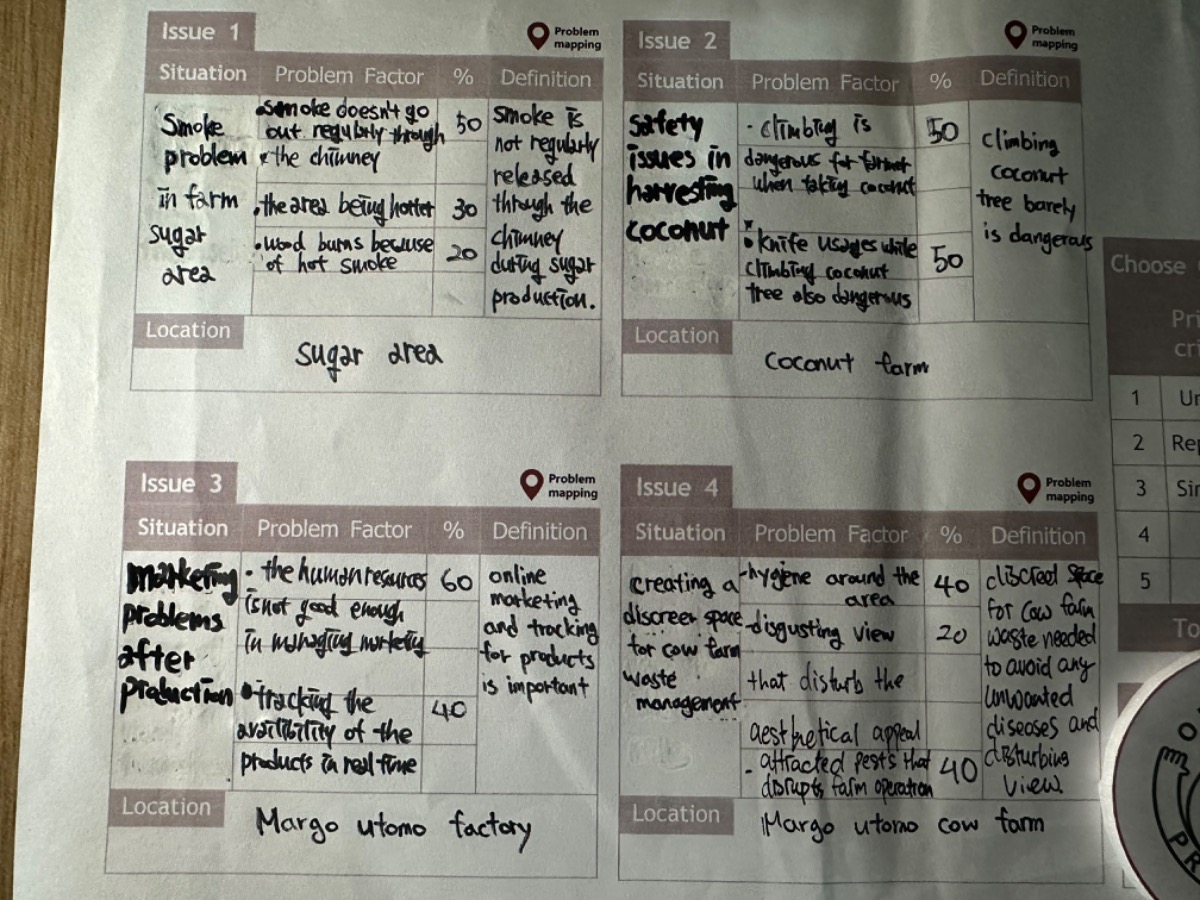 Issue 1
Problem
mapping
Situation Problem Factor % Definition
Smoke
problem
in farm
sugar
area
• smoke doesn't go
out regularly through
the chimney
50
• the area being hotter
30
• wood burns because
of hot smoke
20
Smoke is
not regularly
released
through the
chimney
during sugar
production.
Location
sugar area
Issue 2
Problem
mapping
Situation Problem Factor % Definition
safety
issues in
harvesting
coconut
• climbing is
dangerous for farmer
when taking coconut
50
• knife usages while
climbing coconut
tree also dangerous
50
Climbing
coconut
tree barely
is dangerous
Location
Coconut farm
Issue 3
Problem
mapping
Situation Problem Factor % Definition
marketing
problems
after
production
• the human resources
is not good enough
in managing marketing
60
• tracking the
availibility of the
products in real time
40
online
marketing
and tracking
for products
is important
Location
Margo utomo factory
Issue 4
Problem
mapping
Situation Problem Factor % Definition
creating a
discreer space
for cow farm
waste
management
- hygiene around the
area
40
- disgusting view
20
that disturb the
aesthetical appeal
- attracted pests that
disrupts farm operation
40
discreet space
for cow farm
waste needed
to avoid any
unwanted
diseases and
disturbing
view.
Location
Margo utomo cow farm
Choose
Pri
cri
1 Ur
2 Rep
3 Sir
4
5
To
PR